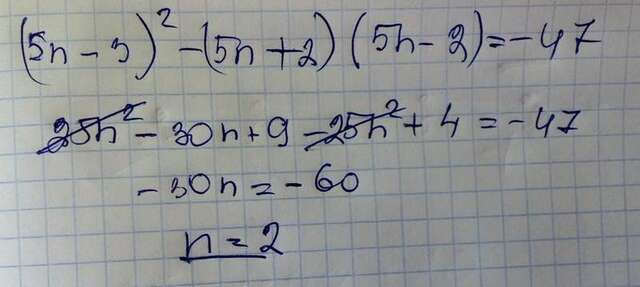 (5n - 3)² - (5n + 2)(5n - 2) = -47
25n² - 30n + 9 - 25n² + 4 = -47
- 30n = - 60
n = 2